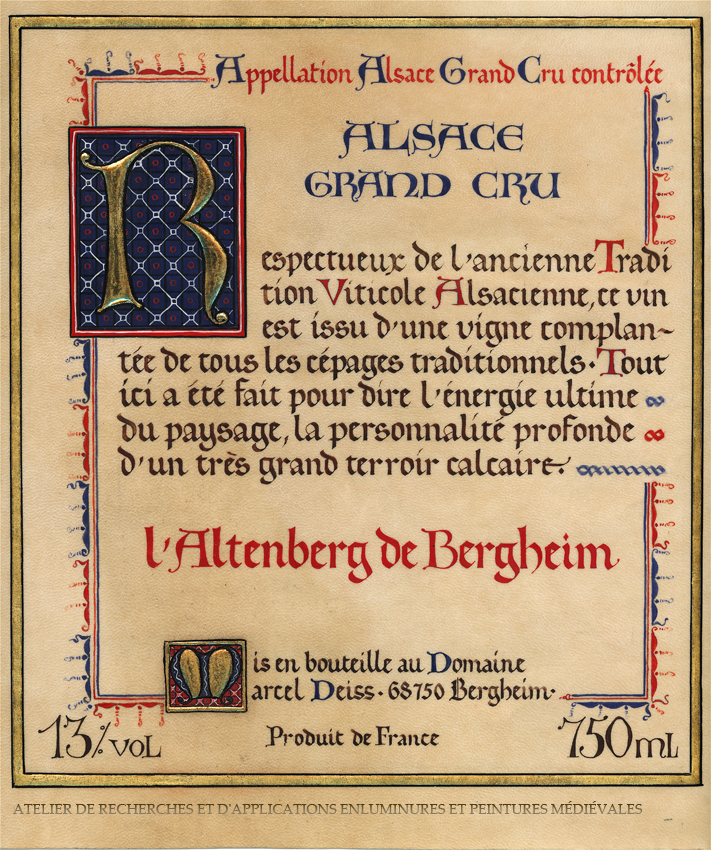 Appellation Alsace Grand Cru contrôlée
ALSACE
GRAND CRU
Respectueux de l'ancienne Tradi
tion Viticole Alsacienne, ce vin
est issu d'une vigne complan~
tée de tous les cépages traditionnels. Tout
ici a été fait pour dire l'énergie ultime
du paysage, la personnalité profonde
d'un très grand terroir calcaire.
l'Altenberg de Bergheim
Mis en bouteille au Domaine
Marcel Deiss. 68750 Bergheim.
13% VOL
Produit de France
750 mL
ATELIER DE RECHERCHES ET D'APPLICATIONS ENLUMINURES ET PEINTURES MÉDIÉVALES